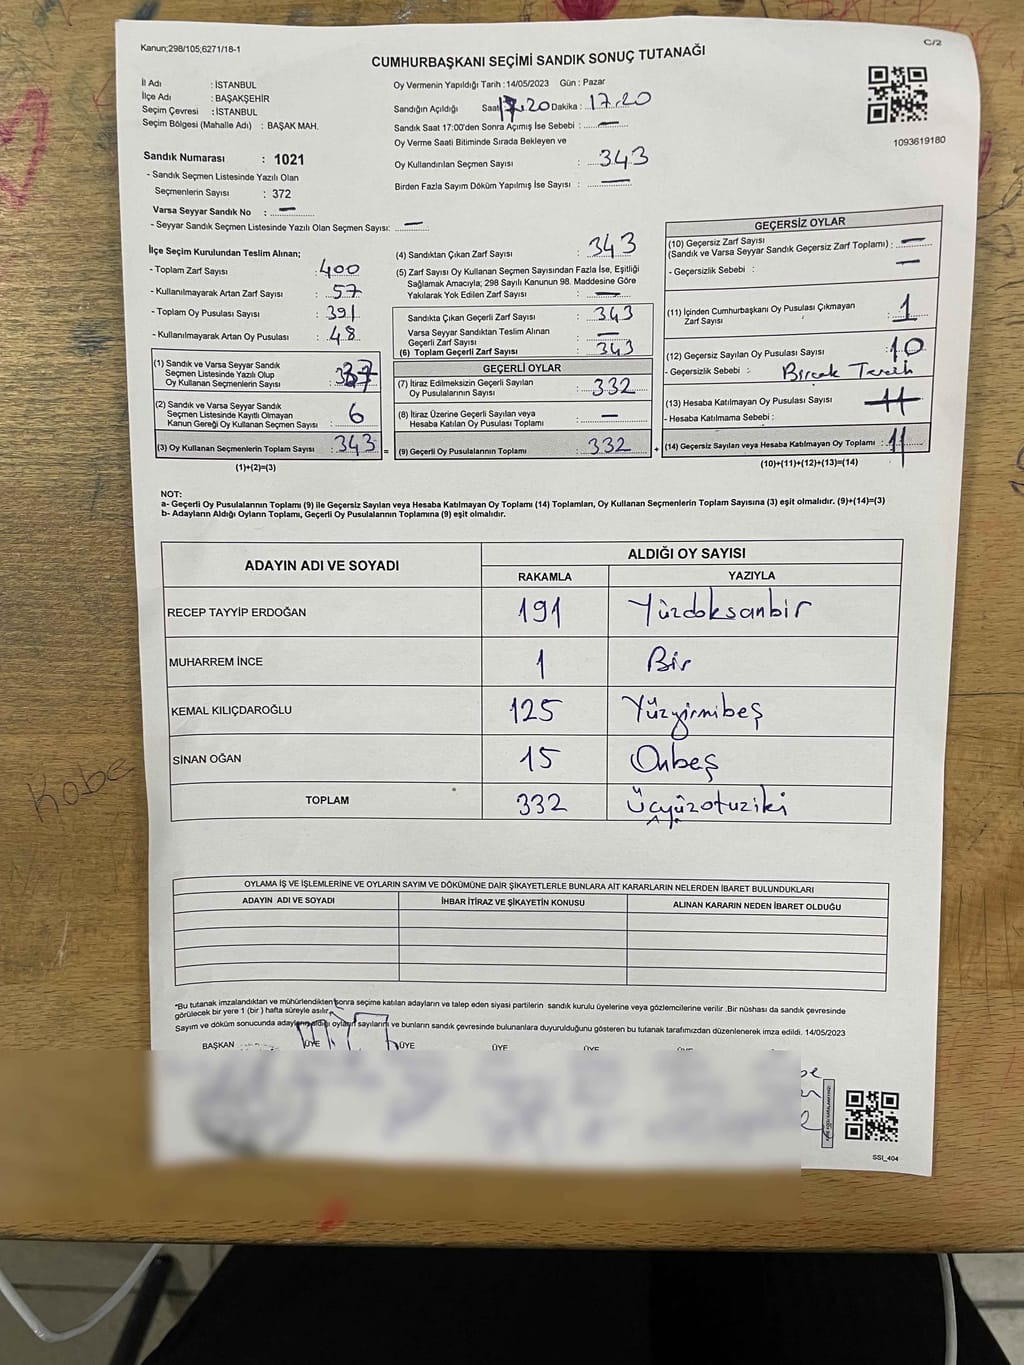 Kanun;298/105;6271/18-1
C/2
CUMHURBAŞKANI SEÇİMİ SANDIK SONUÇ TUTANAĞI
İl Adı : İSTANBUL
İlçe Adı : BAŞAKŞEHİR
Seçim Çevresi : İSTANBUL
Seçim Bölgesi (Mahalle Adı) : BAŞAK MAH.
Oy Vermenin Yapıldığı Tarih : 14/05/2023 Gün : Pazar
Sandığın Açıldığı Saat 17.20 Dakika : 17.20
Sandık Saat 17:00'den Sonra Açımış İse Sebebi : —
Oy Verme Saati Bitiminde Sırada Bekleyen ve
Oy Kullandırılan Seçmen Sayısı : 343
Birden Fazla Sayım Döküm Yapılmış İse Sayısı : —
1093619180
Sandık Numarası : 1021
- Sandık Seçmen Listesinde Yazılı Olan
Seçmenlerin Sayısı : 372
Varsa Seyyar Sandık No : —
- Seyyar Sandık Seçmen Listesinde Yazılı Olan Seçmen Sayısı: —
İlçe Seçim Kurulundan Teslim Alınan;
- Toplam Zarf Sayısı : 400
- Kullanılmayarak Artan Zarf Sayısı : 57
- Toplam Oy Pusulası Sayısı : 391
- Kullanılmayarak Artan Oy Pusulası : 48
(1) Sandık ve Varsa Seyyar Sandık
Seçmen Listesinde Yazılı Olup
Oy Kullanan Seçmenlerin Sayısı : 337
(2) Sandık ve Varsa Seyyar Sandık
Seçmen Listesinde Kayıtlı Olmayan
Kanun Gereği Oy Kullanan Seçmen Sayısı : 6
(3) Oy Kullanan Seçmenlerin Toplam Sayısı : 343 =
(1)+(2)=(3)
(4) Sandıktan Çıkan Zarf Sayısı : 343
(5) Zarf Sayısı Oy Kullanan Seçmen Sayısından Fazla İse, Eşitliği
Sağlamak Amacıyla; 298 Sayılı Kanunun 98. Maddesine Göre
Yakılarak Yok Edilen Zarf Sayısı : —
Sandıkta Çıkan Geçerli Zarf Sayısı : 343
Varsa Seyyar Sandıktan Teslim Alınan
Geçerli Zarf Sayısı : —
(6) Toplam Geçerli Zarf Sayısı : 343
GEÇERLİ OYLAR
(7) İtiraz Edilmeksizin Geçerli Sayılan
Oy Pusulasının Sayısı : 332
(8) İtiraz Üzerine Geçerli Sayılan veya
Hesaba Katılan Oy Pusulası Toplamı : —
(9) Geçerli Oy Pusulalarının Toplamı : 332 +
GEÇERSİZ OYLAR
(10) Geçersiz Zarf Sayısı
(Sandık ve Varsa Seyyar Sandık Geçersiz Zarf Toplamı) : —
- Geçersizlik Sebebi : —
(11) İçinden Cumhurbaşkanı Oy Pusulası Çıkmayan
Zarf Sayısı : 1
(12) Geçersiz Sayılan Oy Pusulası Sayısı : 10
- Geçersizlik Sebebi : Birçok Tercih
(13) Hesaba Katılmayan Oy Pusulası Sayısı :
- Hesaba Katılmama Sebebi :
(14) Geçersiz Sayılan veya Hesaba Katılmayan Oy Toplamı : 11
(10)+(11)+(12)+(13)=(14)
NOT:
a- Geçerli Oy Pusulalarının Toplamı (9) ile Geçersiz Sayılan veya Hesaba Katılmayan Oy Toplamı (14) Toplamları, Oy Kullanan Seçmenlerin Toplam Sayısına (3) eşit olmalıdır. (9)+(14)=(3)
b- Adayların Aldığı Oyların Toplamı, Geçerli Oy Pusulalarının Toplamına (9) eşit olmalıdır.
ADAYIN ADI VE SOYADI ALDIĞI OY SAYISI
RAKAMLA YAZIYLA
RECEP TAYYİP ERDOĞAN 191 Yüzdoksanbir
MUHARREM İNCE 1 Bir
KEMAL KILIÇDAROĞLU 125 Yüzyirmibeş
SİNAN OĞAN 15 Onbeş
TOPLAM 332 Üçyüzotuziki
Kobe
OYLAMA İŞ VE İŞLEMLERİNE VE OYLARIN SAYIM VE DÖKÜMÜNE DAİR ŞİKAYETLERLE BUNLARA AİT KARARLARIN NELERDEN İBARET BULUNDUKLARI
ADAYIN ADI VE SOYADI İHBAR İTİRAZ VE ŞİKAYETİN KONUSU ALINAN KARARIN NEDEN İBARET OLDUĞU
*Bu tutanak imzalandıktan ve mühürlendikten sonra seçime katılan adayların ve talep eden siyasi partilerin sandık kurulu üyelerine veya gözlemcilerine verilir .Bir nüshası da sandık çevresinde
görülecek bir yere 1 (bir ) hafta süreyle asılır.
Sayım ve döküm sonucunda adayların aldığı oyların sayılarını ve bunların sandık çevresinde bulunanlara duyurulduğunu gösteren bu tutanak tarafımızdan düzenlenerek imza edildi. 14/05/2023
BAŞKAN ÜYE ÜYE ÜYE ÜYE ÜYE
SSI_404